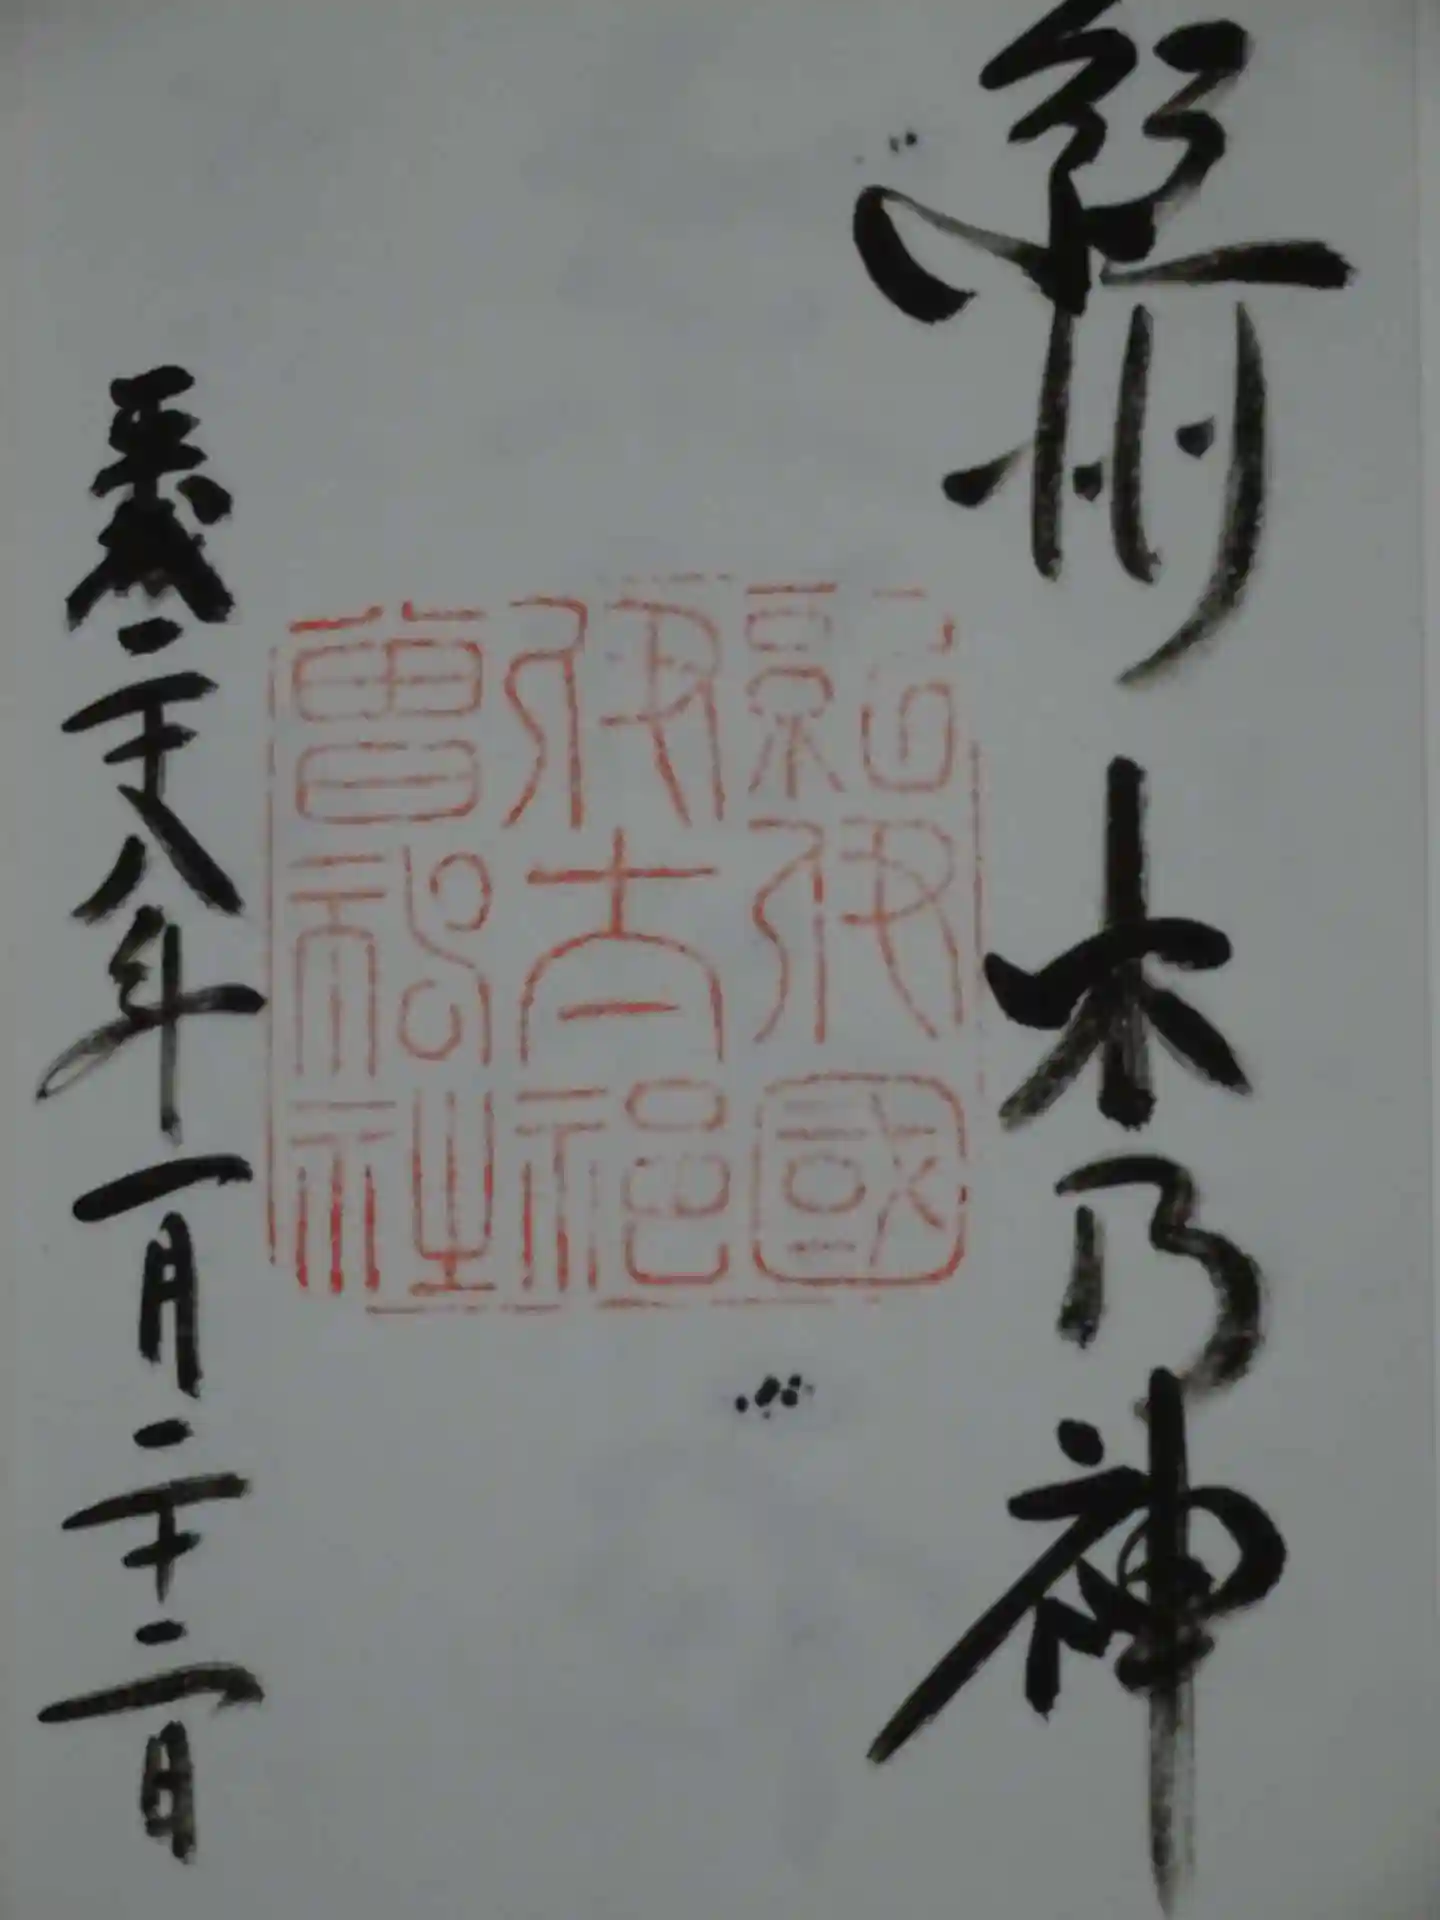 紀州 木乃神
紀伊國
伊太祁
曾神社
平成二十八年一月二十二日